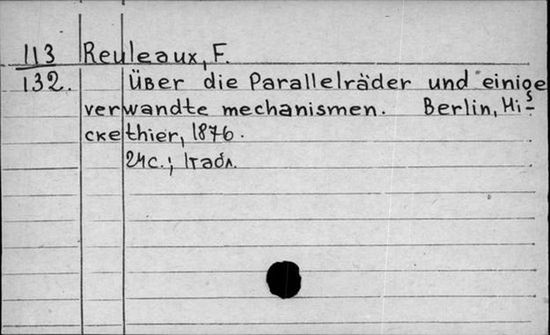 113 Reuleaux, F.
132. Über die Parallelräder und einige
verwandte mechanismen. Berlin, Mis-
ckethier, 1876.
24c.; 1табл.